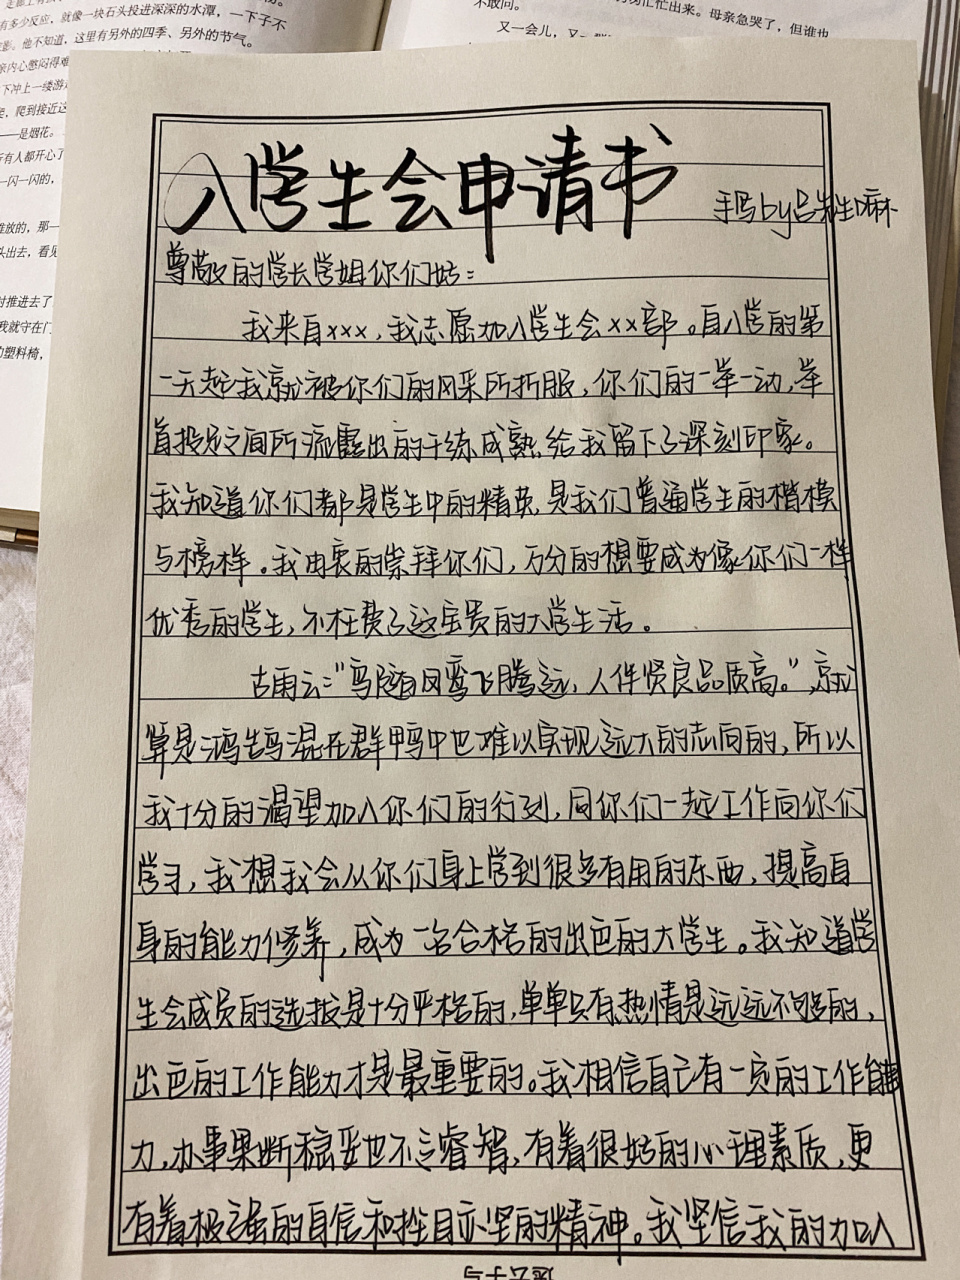 有多少反应，就像一块石头投进深深的水潭，一下子不
他不知道，这里有另外的四季、另外的节气。
亲内心憋闷得难
下冲上一缕游
爬到接近这
——是烟花。
所有人都开心了
一闪一闪的，
推放的，那一
头出去，看见
时推进去了
我就守在门
的塑料椅，
不敢问。
忙忙出来。母亲急哭了，但谁也
又一会儿，又
入学生会申请书
手写by吕先生嘛
尊敬的学长学姐你们好：
我来自xxx，我志愿加入学生会xx部。自入学的第
一天起我就被你们的风采所折服，你们的一举一动，举
首投足之间所流露出的干练成熟给我留下了深刻印象。
我知道你们都是学生中的精英，是我们普通学生的楷模
与榜样。我由衷的崇拜你们，万分的想要成为像你们一样
优秀的学生，不枉费了这宝贵的大学生活。
古语云：“鸟随鸾飞腾远，人伴贤良品质高。”，就
算是鸿鹄混在群鸭中也难以实现远大的志向的，所以
我十分的渴望加入你们的行列，同你们一起工作向你们
学习，我想我会从你们身上学到很多有用的东西，提高自
身的能力修养，成为一名合格的出色的大学生。我知道学
生会成员的选拔是十分严格的，单单只有热情是远远不够的，
出色的工作能力才是最重要的。我相信自己有一定的工作能
力，办事果断稳妥也不乏睿智，有着很好的心理素质，更
有着极强的自信和坚的精神。我坚信我的加入